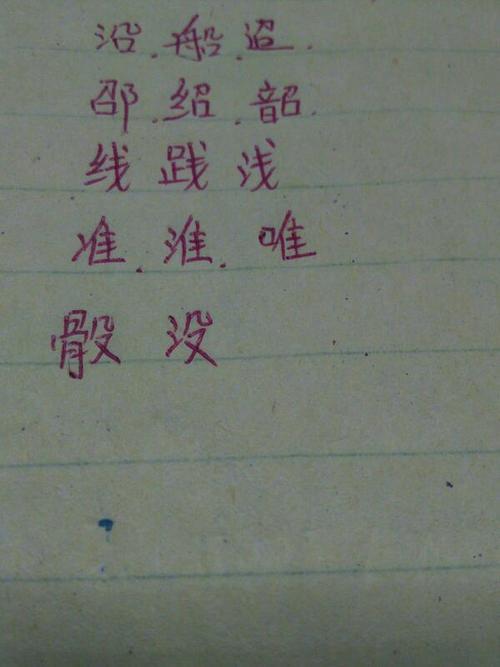 沿.船.
邵.绍.韶.
线 践 浅
准.淮.唯
骰 没